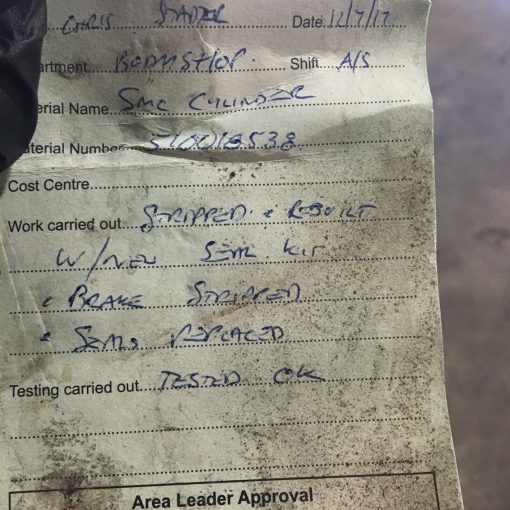 CHRIS STADER Date 12/7/17
artment BODYSHOP. Shift A/S
erial Name SMC CYLINDER
aterial Number 540018538
Cost Centre
Work carried out STRIPPED & REBUILT
W/NEW SEAL KIT
• BRAKE STRIPPED
• SEALS REPLACED
Testing carried out TESTED OK
Area Leader Approval